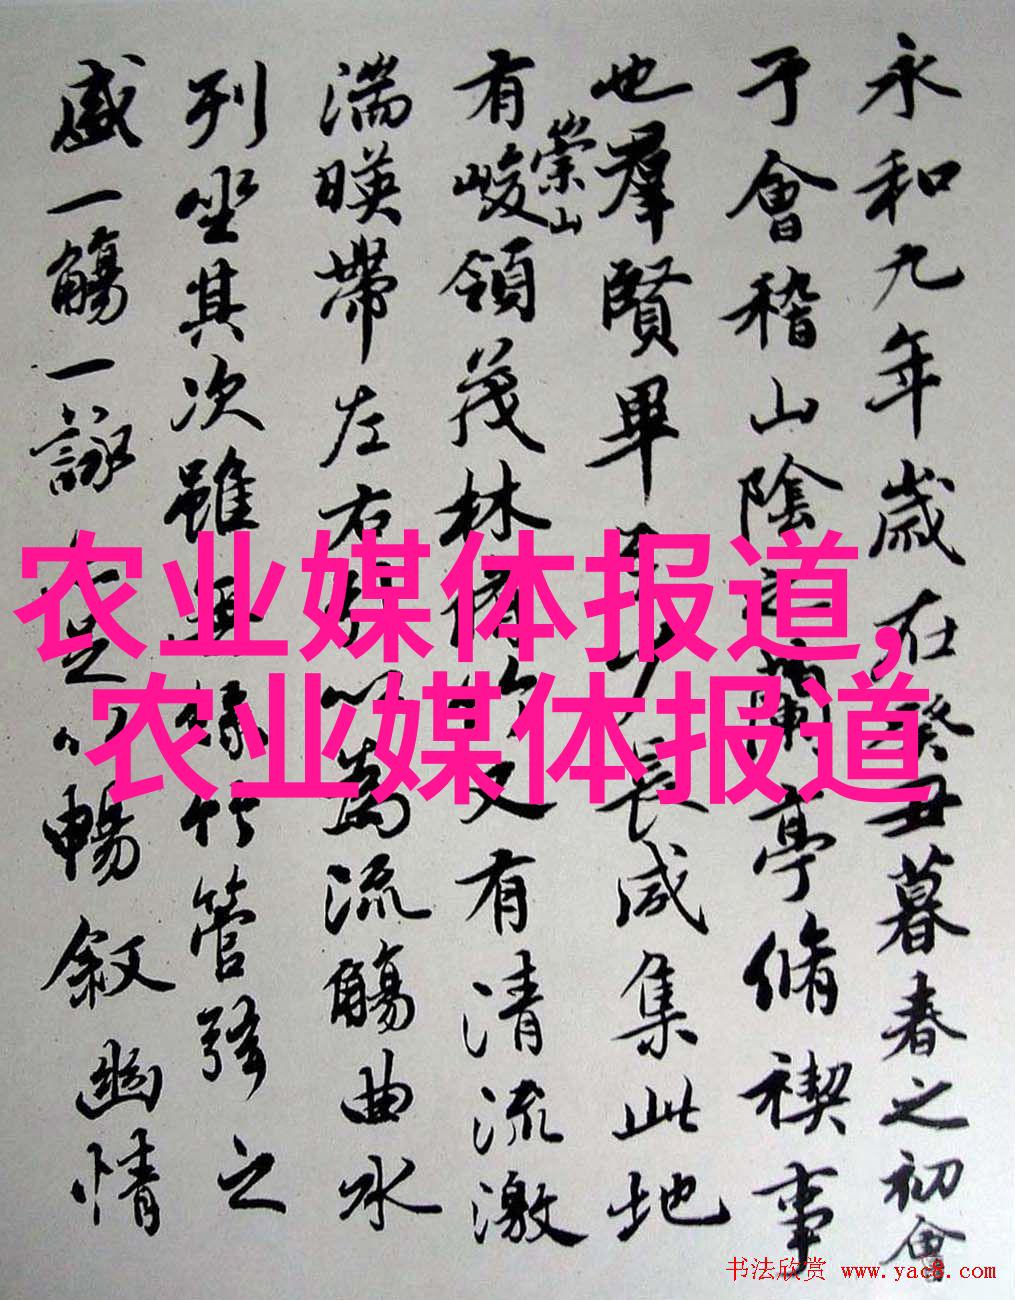 永和九年歲在癸丑暮春之初會
于會稽山陰之蘭亭脩禊事
也羣賢畢至少長咸集此地
有崇山峻領茂林脩竹又有清流激
湍暎帶左右引以為流觴曲水
列坐其次雖無絲竹管弦之
盛一觴一詠亦足以暢敘幽情
农业媒体报道,
农业媒体报道
书法欣赏 www.yac8.com